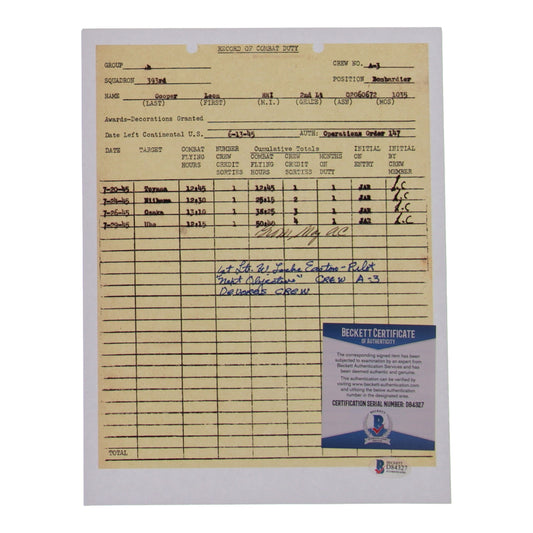 RECORD OF COMBAT DUTY
GROUP CREW NO. A-3
SQUADRON 393rd POSITION Bombardier
NAME Cooper Leon NMI 2nd Lt 02060672 1035
(LAST) (FIRST) (M.I.) (GRADE) (ASN) (MOS)
Awards-Decorations Granted
Date Left Continental U.S. 6-13-45 AUTH: Operations Order 147
DATE TARGET COMBAT NUMBER Cumulative Totals INITIAL INITIAL
FLYING CREW COMBAT CREW MONTHS ON BY
HOURS CREDIT FLYING CREDIT ON ENTRY CREW
SORTIES HOURS SORTIES DUTY MEMBER
7-20-45 Toyama 12:45 1 12:45 1 1 JAR L.C
7-24-45 Niihama 12:30 1 25:15 2 1 JAR L.C
7-26-45 Osaka 1 38:25 3 1 JAR L.C
7-29-45 Ube 12:15 1 50:40 4 1 JAR L.C
1st Lt. W Leslie Easton - Pilot
"Next Objective" CREW A-3
DeVores CREW
TOTAL
BECKETT CERTIFICATE
OF AUTHENTICITY
The corresponding signed item has been
subjected to examination by an expert from
Beckett Authentication Services and has
been deemed authentic and genuine.
This authentication can be verified by
visiting www.beckett-authentication.com
and utilizing the below authentication
number in the designated area.
CERTIFICATION SERIAL NUMBER: D84327
BECKETT
B
BECKETT
D84327